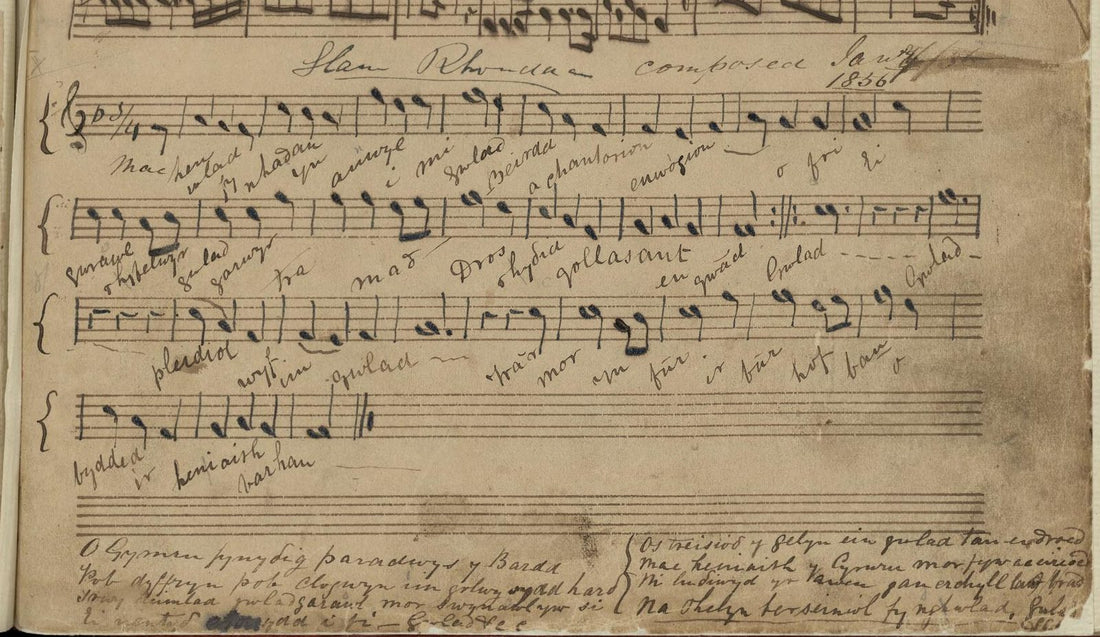 Glan Rhondda composed Jany
1856
Mae hen wlad fy nhadau yn anwyl i mi gwlad Beirdd a chantorion enwogion o fri Ei
gwrawl ryfelwyr gwlad garwyr tra mad Dros rhydid gollasant eu gwaed Gwlad Gwlad
pleidiol wyf im gwlad tra mor yn fur ir bur hof bau o
bydded ir heniaith barhau
O Gymru fynydig paradwys y Bardd
Pob dyffryn pob clogwyn im golwg sydd hardd
trwy deimlad gwladgarawl mor swynawl yw si
Ei nentydd afonydd i fi - Gwlad &c
Os treisiod y gelyn ein gwlad tan ei droed
Mae heniaith y Cymru mor fyw ac erioed
Ni ludiwyd yr awen gan erchyll law brad
Na thelyn berseiniol fy ngwlad. Gwlad